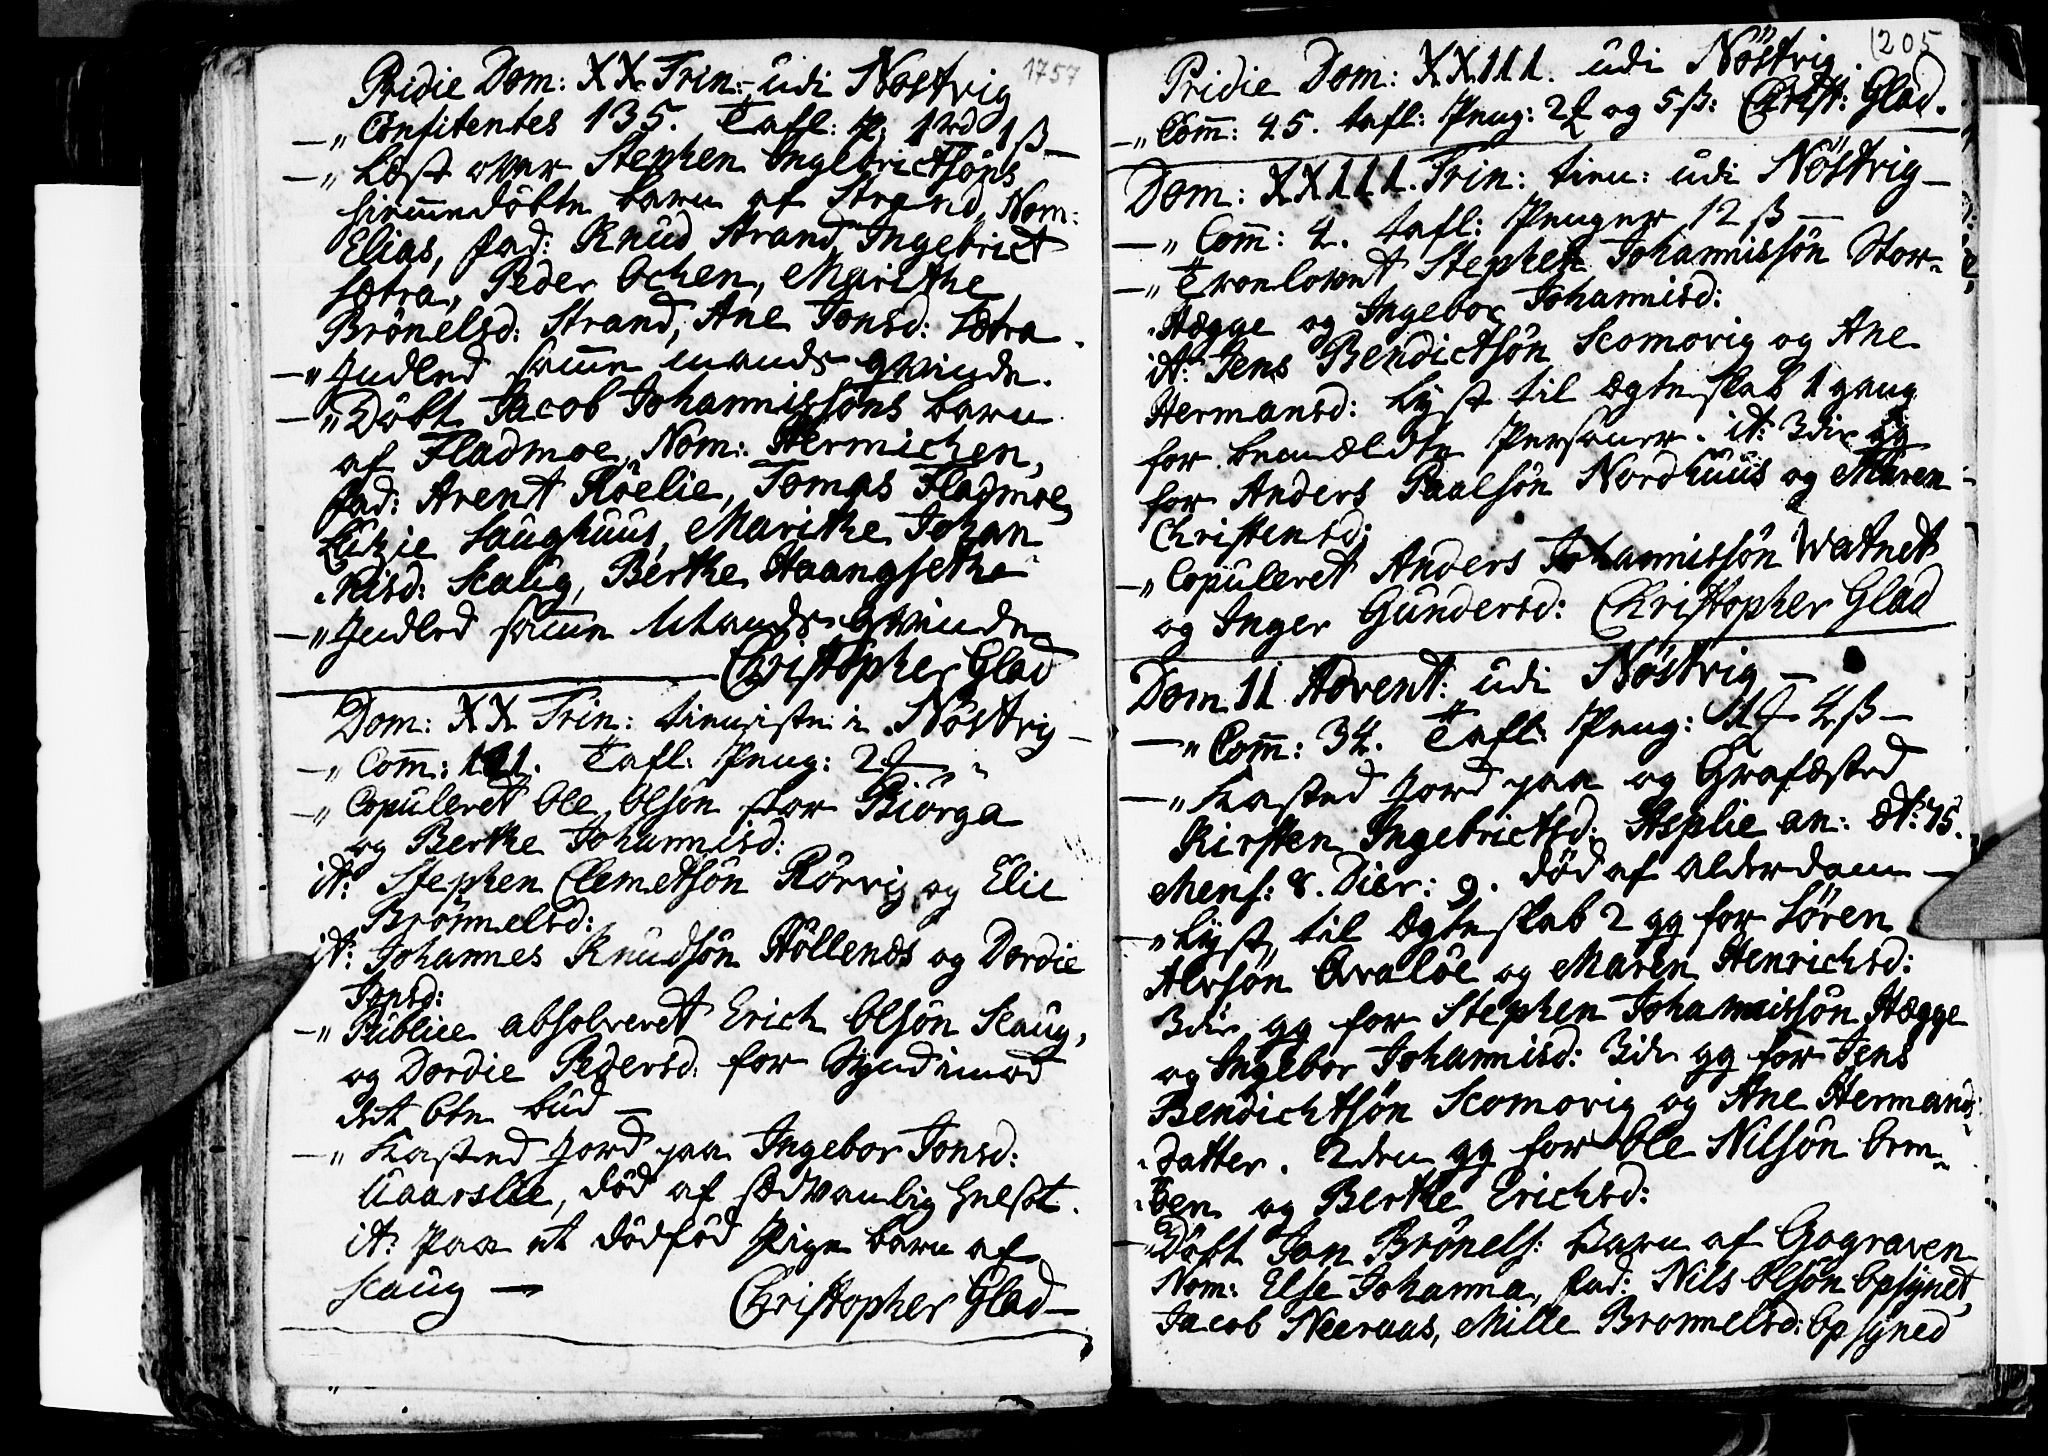 Pridie Dom: XX Trin: udi Nöstvig
1757
—„ Confitentes 135. Tafl: P: 1 rd 1 ß —
—„ Læst over Stephen Ingebrictsöns
hiemmedöbte barn af Strand, Nom:
Elias, fad: Knud Strand, Ingebrict
Sætra, Peder Ochen, Marithe
Brönelsd: Strand, Ane Jonsd: Sætra.
—„ Indled samme mands qvinde.
—„ Döbt Jacob Johannissöns barn
af Fladmoe, Nom: Hermichen,
fad: Arent Röelie, Tomas Fladmoe,
Lüzie Saughuus, Marithe Johan
nisd: Scaug, Berthe Haangsethe
—„ Indled samme Mands qvinde
Christopher Glad
Dom: XX Trin: tieniste i Nöstvig —
—„ Com̄: 121. Tafl: Peng: 2
—„ Copuleret Ole Olsön Stor Biörga
og Berthe Johannisd:
it: Stephen Clemetsön Rörvig og Elie
Brönnelsd:
it: Johannes Knudsön Höllends og Dordie
Jonsd:
—„ Publice absolveret Erich Olsön Scaug,
og Dordie Pedersd. for Synd imod
det 6te bud —
—„ Kasted Jord paa Ingebor Jonsd:
Aaarslie, död af sædvanlig
it: Paa et dödföd Pige barn af
Scaug —
Christopher Glad —
205
Pridie Dom: XXIII. udi Nöstvig.
—„ Com̄: 45. tafl: Peng: 2 og 5 ß: Christ: Glad.
Dom: XXIII. Trin: tien: udi Nöstvig —
—„ Com̄: 4. tafl: Penger 12 ß —
—„ Troelovet Stephen Johannissön Stor-
Hægge og Ingebor Johannisd:
it: Jens Bendictsön Scomovig og Ane
Hermansd: Lyst til ægteskab 1 gang
for bemældte Personer. it: 3die gg
for Anders Paalsön Nordhuus og Maren
Christensd:
—„ Copuleret Anders Johannissön Watnet
og Inger Gundersd: Christopher Glad
Dom II Advent: udi Nöstvig —
—„ Com̄: 34. Tafl: Peng: 1 4 ß —
—„ Kasted Jord paa og Grafæsted
Kirsten Ingebrictsd: Asplie an: æt: 75.
Mens: 8. Dier: 9. död af alderdom —
—„ Lyst til ægteskab 2 gg for Sören
Alvsön Qvalöe og Maren Henrichsd:
3die gg for Stephen Johannissön Hægge
og Ingebor Johannisd: 3die gg for Jens
Bendichtsön Scomovig og Ane Hermands
datter. 2den gg for Ole Nilsön Orm-
öen og Berthe Erichsd:
—„ Döbt Jon Brönels: Barn af Gograven
Nom: Else Johanna, fad: Nils Olsön Opsynet,
Jacob Neeraas, Mille Bronnelsd: Opsyned